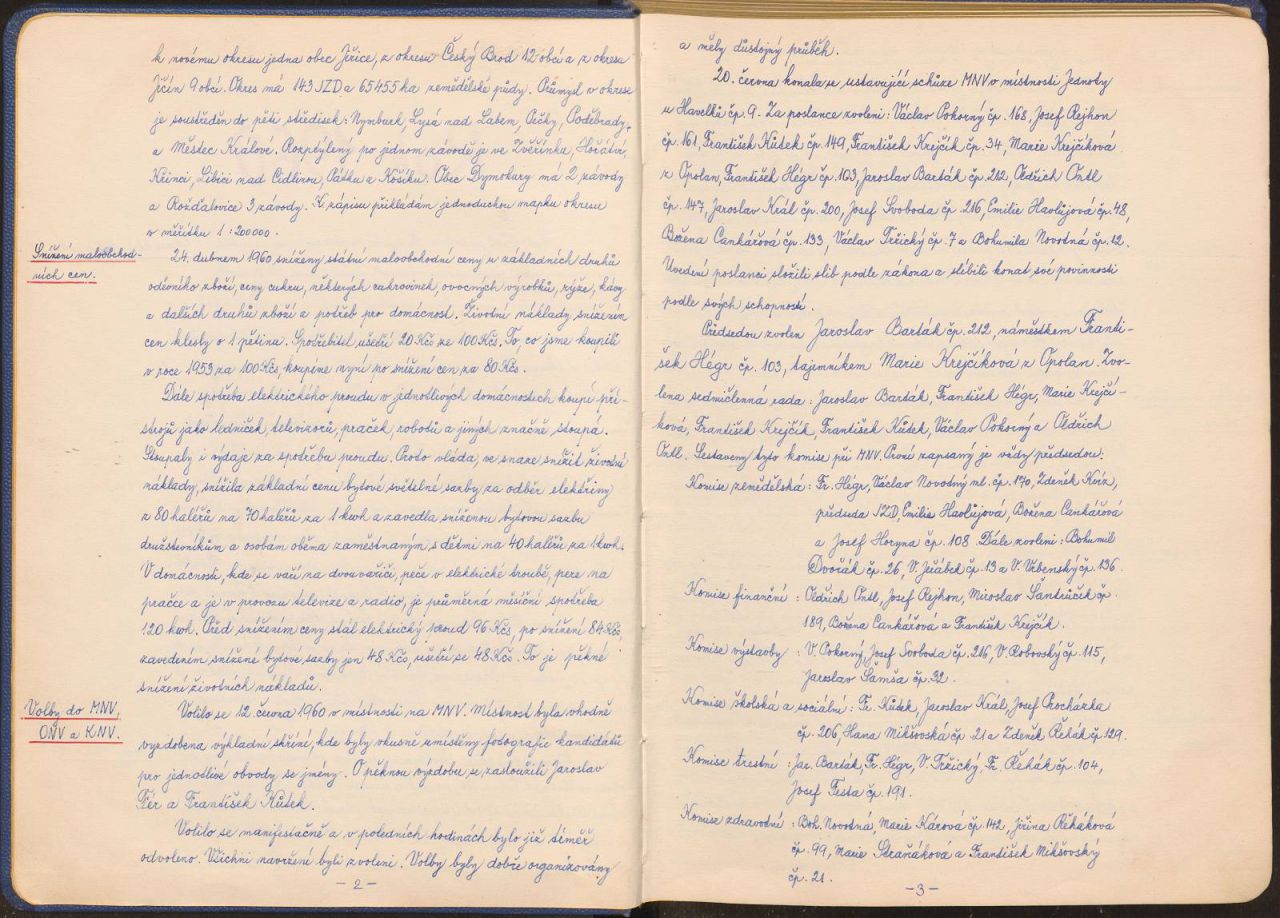 k novému okresu jedna obec Jiřice, z okresu Český Brod 12 obcí a z okresu
Jičín 9 obcí. Okres má 143 JZD a 65455 ha zemědělské půdy. Průmysl v okrese
je soustředěn do pěti středisek: Nymburk, Lysá nad Labem, Pečky, Poděbrady,
a Městec Králové. Rozptýleny po jednom závodě je ve Zvěřínku, Hořátvi,
Křinci, Libici nad Cidlinou, Pátku a Košíku. Obec Dymokury má 2 závody
a Rožďalovice 3 závody. K zápisu přikládám jednoduchou mapku okresu
v měřítku 1:200000.
Snížení maloobchod-
ních cen.
24. dubnem 1960 sníženy státní maloobchodní ceny u základních druhů
oděvního zboží, ceny cukru, některých cukrovinek, ovocných výrobků, rýže, kávy
a dalších druhů zboží a potřeb pro domácnost. Životní náklady snížením
cen klesly o 1 pětinu. Spotřebitel ušetří 20 Kčs ze 100 Kčs. To, co jsme koupili
v roce 1953 za 100 Kčs, koupíme nyní po snížení cen za 80 Kčs.
Dále spotřeba elektrického proudu v jednotlivých domácnostech koupí pří-
strojů jako ledniček, televizorů, praček, robotů a jiných značně stoupá.
Stoupaly i výdaje za spotřebu proudu. Proto vláda, ve snaze snížit životní
náklady, snížila základní cenu bytové světelné sazby za odběr elektřiny
z 80 haléřů na 70 haléřů za 1 kwh a zavedla sníženou bytovou sazbu
družstevníkům a osobám oběma zaměstnaným s dětmi na 40 haléřů za 1 kwh.
V domácnosti, kde se vaří na dvouvařiči, peče v elektrické troubě, pere na
pračce a je v provozu televize a radio, je průměrná měsíční spotřeba
120 kwh. Před snížením ceny stál elektrický proud 96 Kčs, po snížení 84 Kčs,
zavedením snížené bytové sazby jen 48 Kčs, ušetří se 48 Kčs. To je pěkné
snížení životních nákladů.
Volby do MNV,
ONV a KNV.
Volilo se 12. června 1960 v místnosti na MNV. Místnost byla vhodně
vyzdobena výkladní skříní, kde byly vkusně umístěny fotografie kandidátů
pro jednotlivé obvody se jmény. O pěknou výzdobu se zasloužili Jaroslav
Fér a František Kůtek.
Volilo se manifestačně a v poledních hodinách bylo již téměř
odvoleno. Všichni navržení byli zvoleni. Volby byly dobře organizovány
- 2 -
a měly důstojný průběh.
20. června konala se ustavující schůze MNV v místnosti Jednoty
u Havelků čp. 9. Za poslance zvoleni: Václav Pokorný čp. 168, Josef Rejhon
čp. 161, František Kůtek čp. 149, František Krejčík čp. 34, Marie Krejčíková
z Opolan, František Hégr čp. 103, Jaroslav Barták čp. 212, Oldřich Ontl
čp. 147, Jaroslav Král čp. 200, Josef Svoboda čp. 216, Emilie Havlůjová čp. 48,
Božena Cankářová čp. 133, Václav Tržický čp. 7 a Bohumila Novotná čp. 12.
Uvedení poslanci složili slib podle zákona a slíbili konat své povinnosti
podle svých schopností.
Předsedou zvolen Jaroslav Barták čp. 212, náměstkem Franti-
šek Hégr čp. 103, tajemníkem Marie Krejčíková z Opolan. Zvo-
lena sedmičlenná rada: Jaroslav Barták, František Hégr, Marie Krejčí-
ková, František Krejčík, František Kůtek, Václav Pokorný a Oldřich
Ontl. Sestaveny tyto komise při MNV. První zapsaný je vždy předsedou:
Komise zemědělská: Fr. Hégr, Václav Novotný ml. čp. 170, Zdeněk Kvíz,
předseda JZD, Emilie Havlůjová, Božena Cankářová
a Josef Horyna čp. 108. Dále zvoleni: Bohumil
Dvořák čp. 26, V. Jeřábek čp. 13 a V. Vrbenský čp. 136.
Komise finanční: Oldřich Ontl, Josef Rejhon, Miroslav Šantrůček čp.
189, Božena Cankářová a František Krejčík.
Komise výstavby: V. Pokorný, Josef Svoboda čp. 216, V. Robovský čp. 115,
Jaroslav Šamša čp. 32.
Komise školská a sociální: Fr. Kůtek, Jaroslav Král, Josef Procházka
čp. 206, Hana Mikšovská čp. 21 a Zdeněk Řehák čp. 129.
Komise trestní: Jar. Barták, Fr. Hégr, V. Tržický, Fr. Řehák čp. 104,
Josef Festa čp. 191.
Komise zdravotní: Boh. Novotná, Marie Kárová čp. 142, Jiřina Řeháková
čp. 99, Marie Straňáková a František Mikšovský
čp. 21.
- 3 -